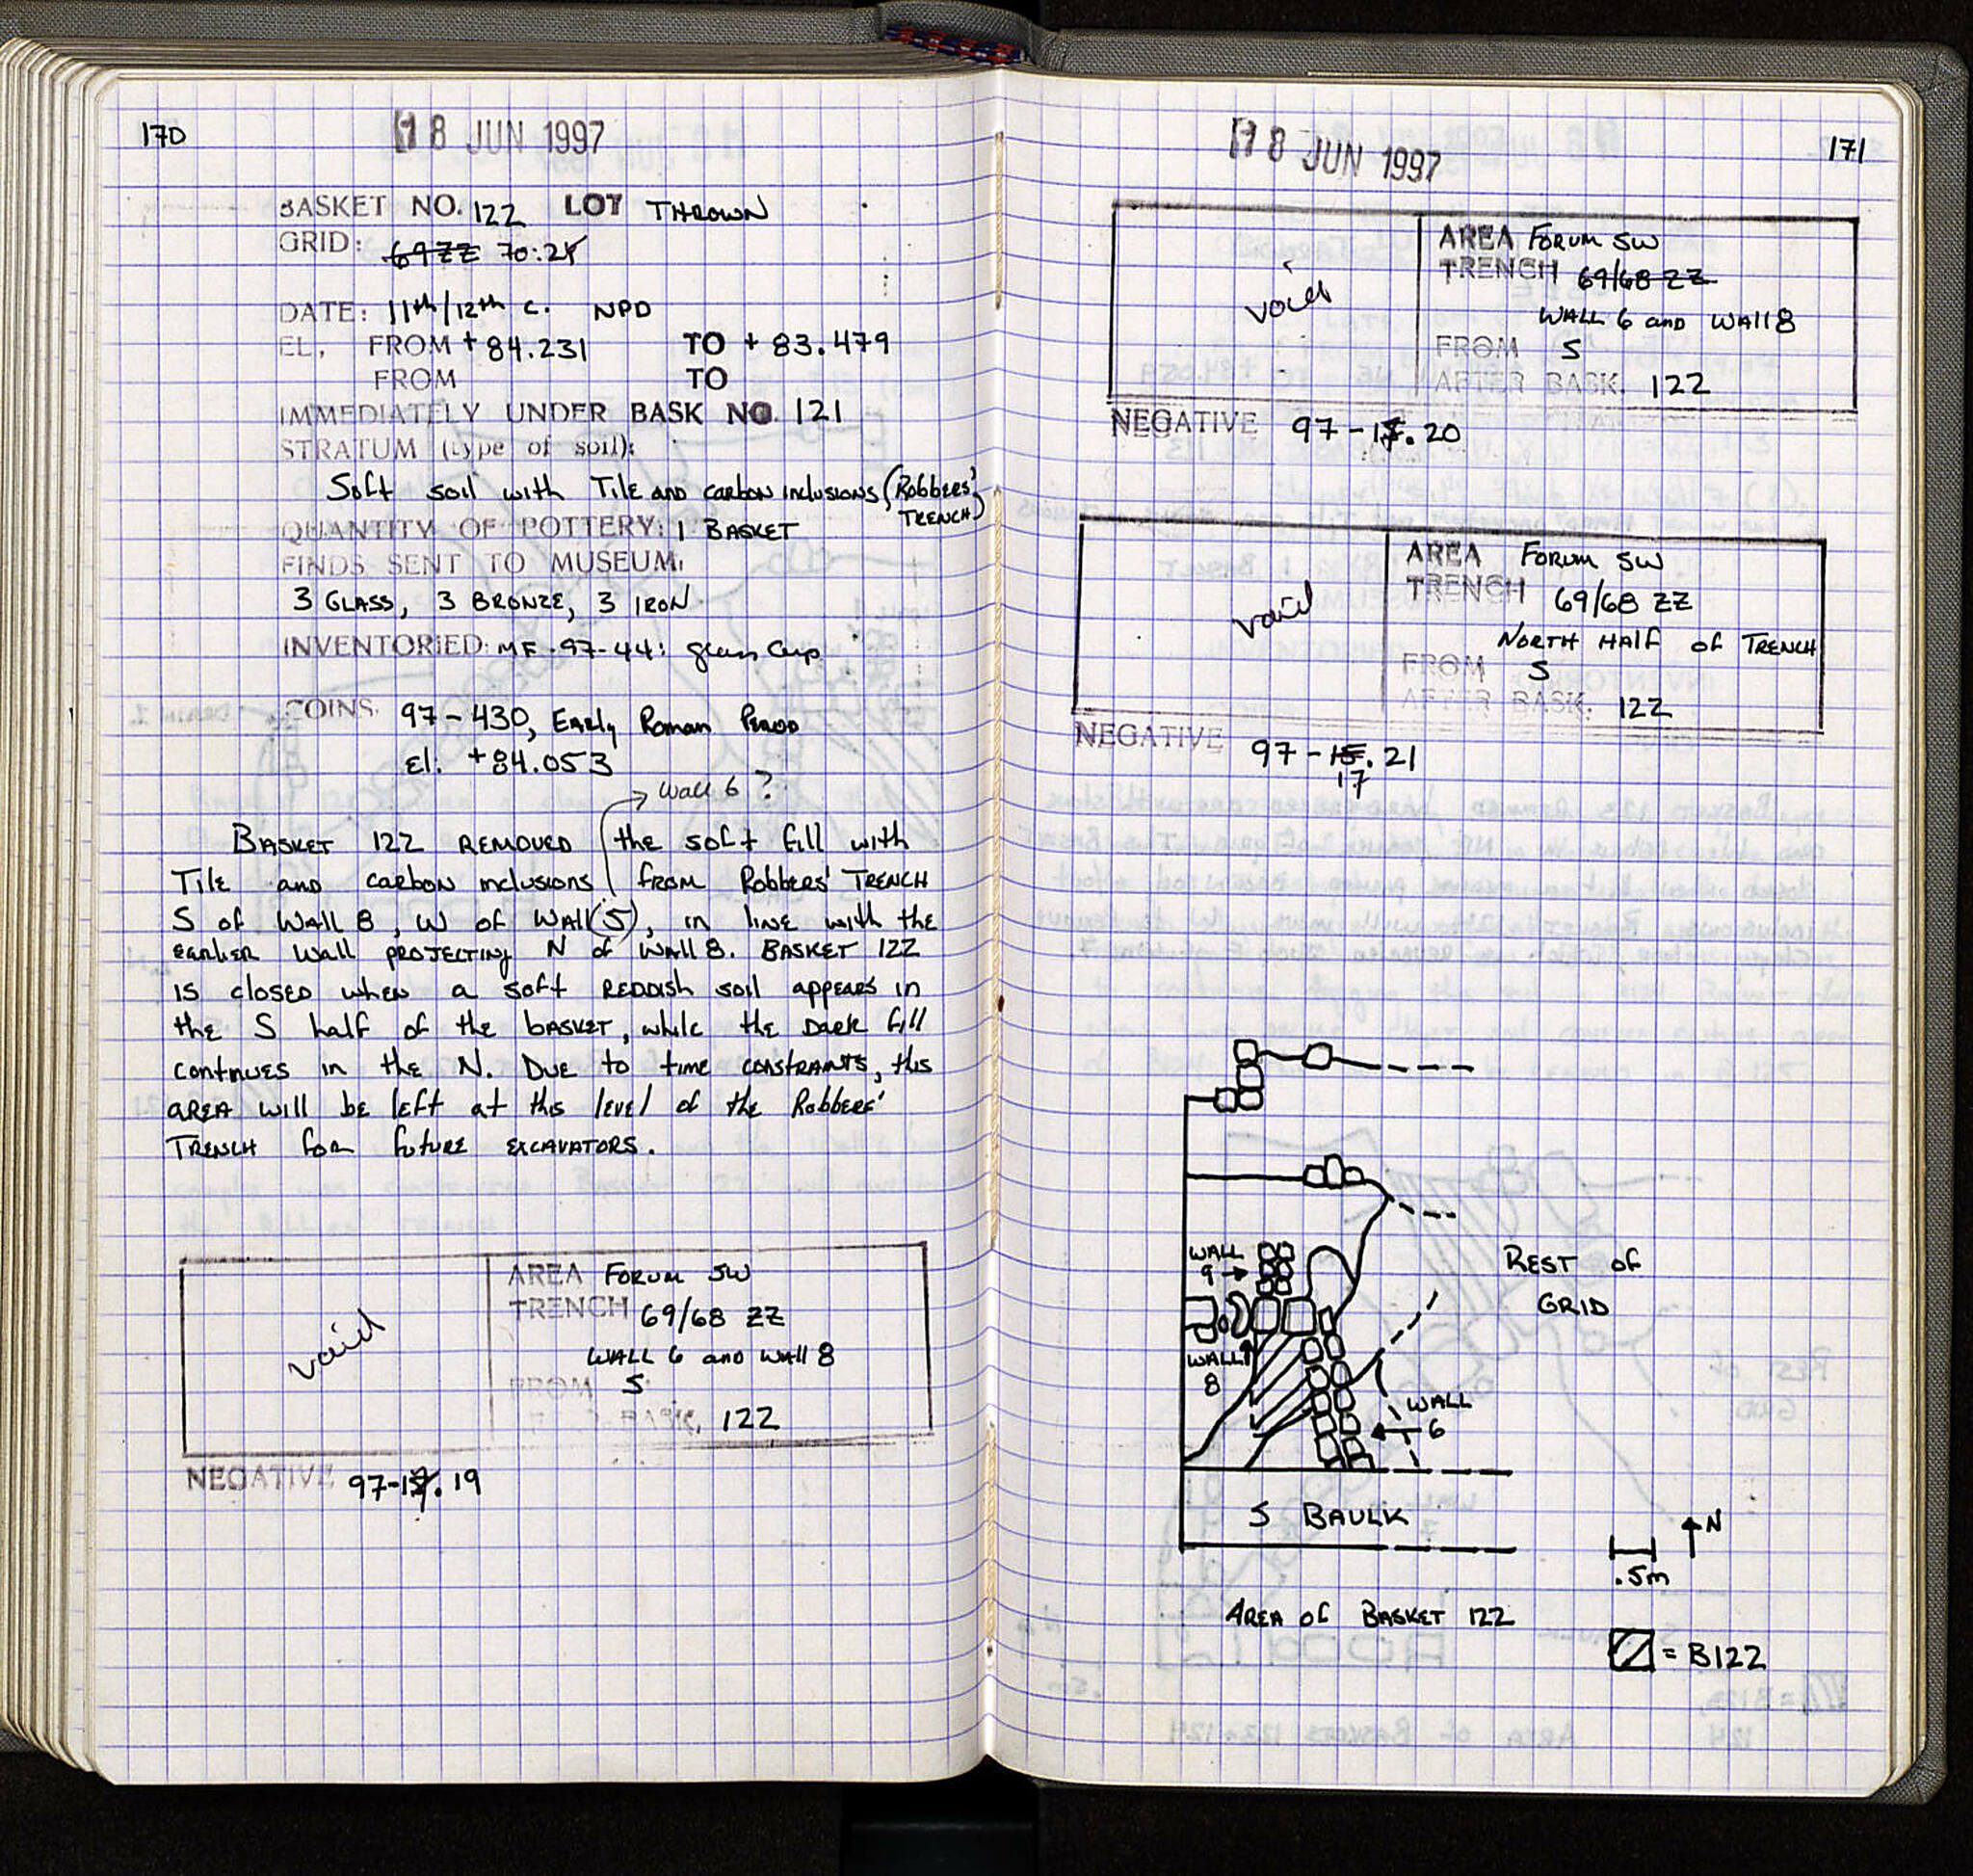 170
18 JUN 1997
BASKET NO. 122 LOT THROWN
GRID: 69ZZ 70:28
DATE: 11th/12th c. NPD
EL. FROM +84.231 TO +83.479
FROM TO
IMMEDIATELY UNDER BASK NO. 121
STRATUM (type of soil):
Soft soil with Tile and carbon inclusions (Robbers'
TRENCH)
QUANTITY OF POTTERY: 1 BASKET
FINDS SENT TO MUSEUM:
3 GLASS, 3 BRONZE, 3 IRON
INVENTORIED: MF-97-44: glass cup
COINS: 97-430, Early Roman Period
El. +84.053
Wall 6?
BASKET 122 REMOVED the soft fill with
Tile and carbon inclusions from Robbers' TRENCH
S of Wall 8, W of Wall (5), in line with the
earlier wall projecting N of Wall 8. BASKET 122
is closed when a soft REDDISH soil appears in
the S half of the basket, while the Dark fill
continues in the N. Due to time constraints, this
area will be left at this level of the Robbers'
TRENCH for future excavators.
void
AREA FORUM SW
TRENCH 69/68 ZZ
WALL 6 and Wall 8
FROM S
BASK. 122
NEGATIVE 97-17.19
171
18 JUN 1997
void
AREA FORUM SW
TRENCH 69/68 ZZ
WALL 6 and WALL 8
FROM S
AFTER BASK. 122
NEGATIVE 97-17.20
void
AREA FORUM SW
TRENCH 69/68 ZZ
NORTH HALF of TRENCH
FROM S
AFTER BASK. 122
NEGATIVE 97-15.21
17
WALL
9
REST of
GRID
WALL
8
WALL
6
S BAULK
N
.5m
AREA of BASKET 122
= B122